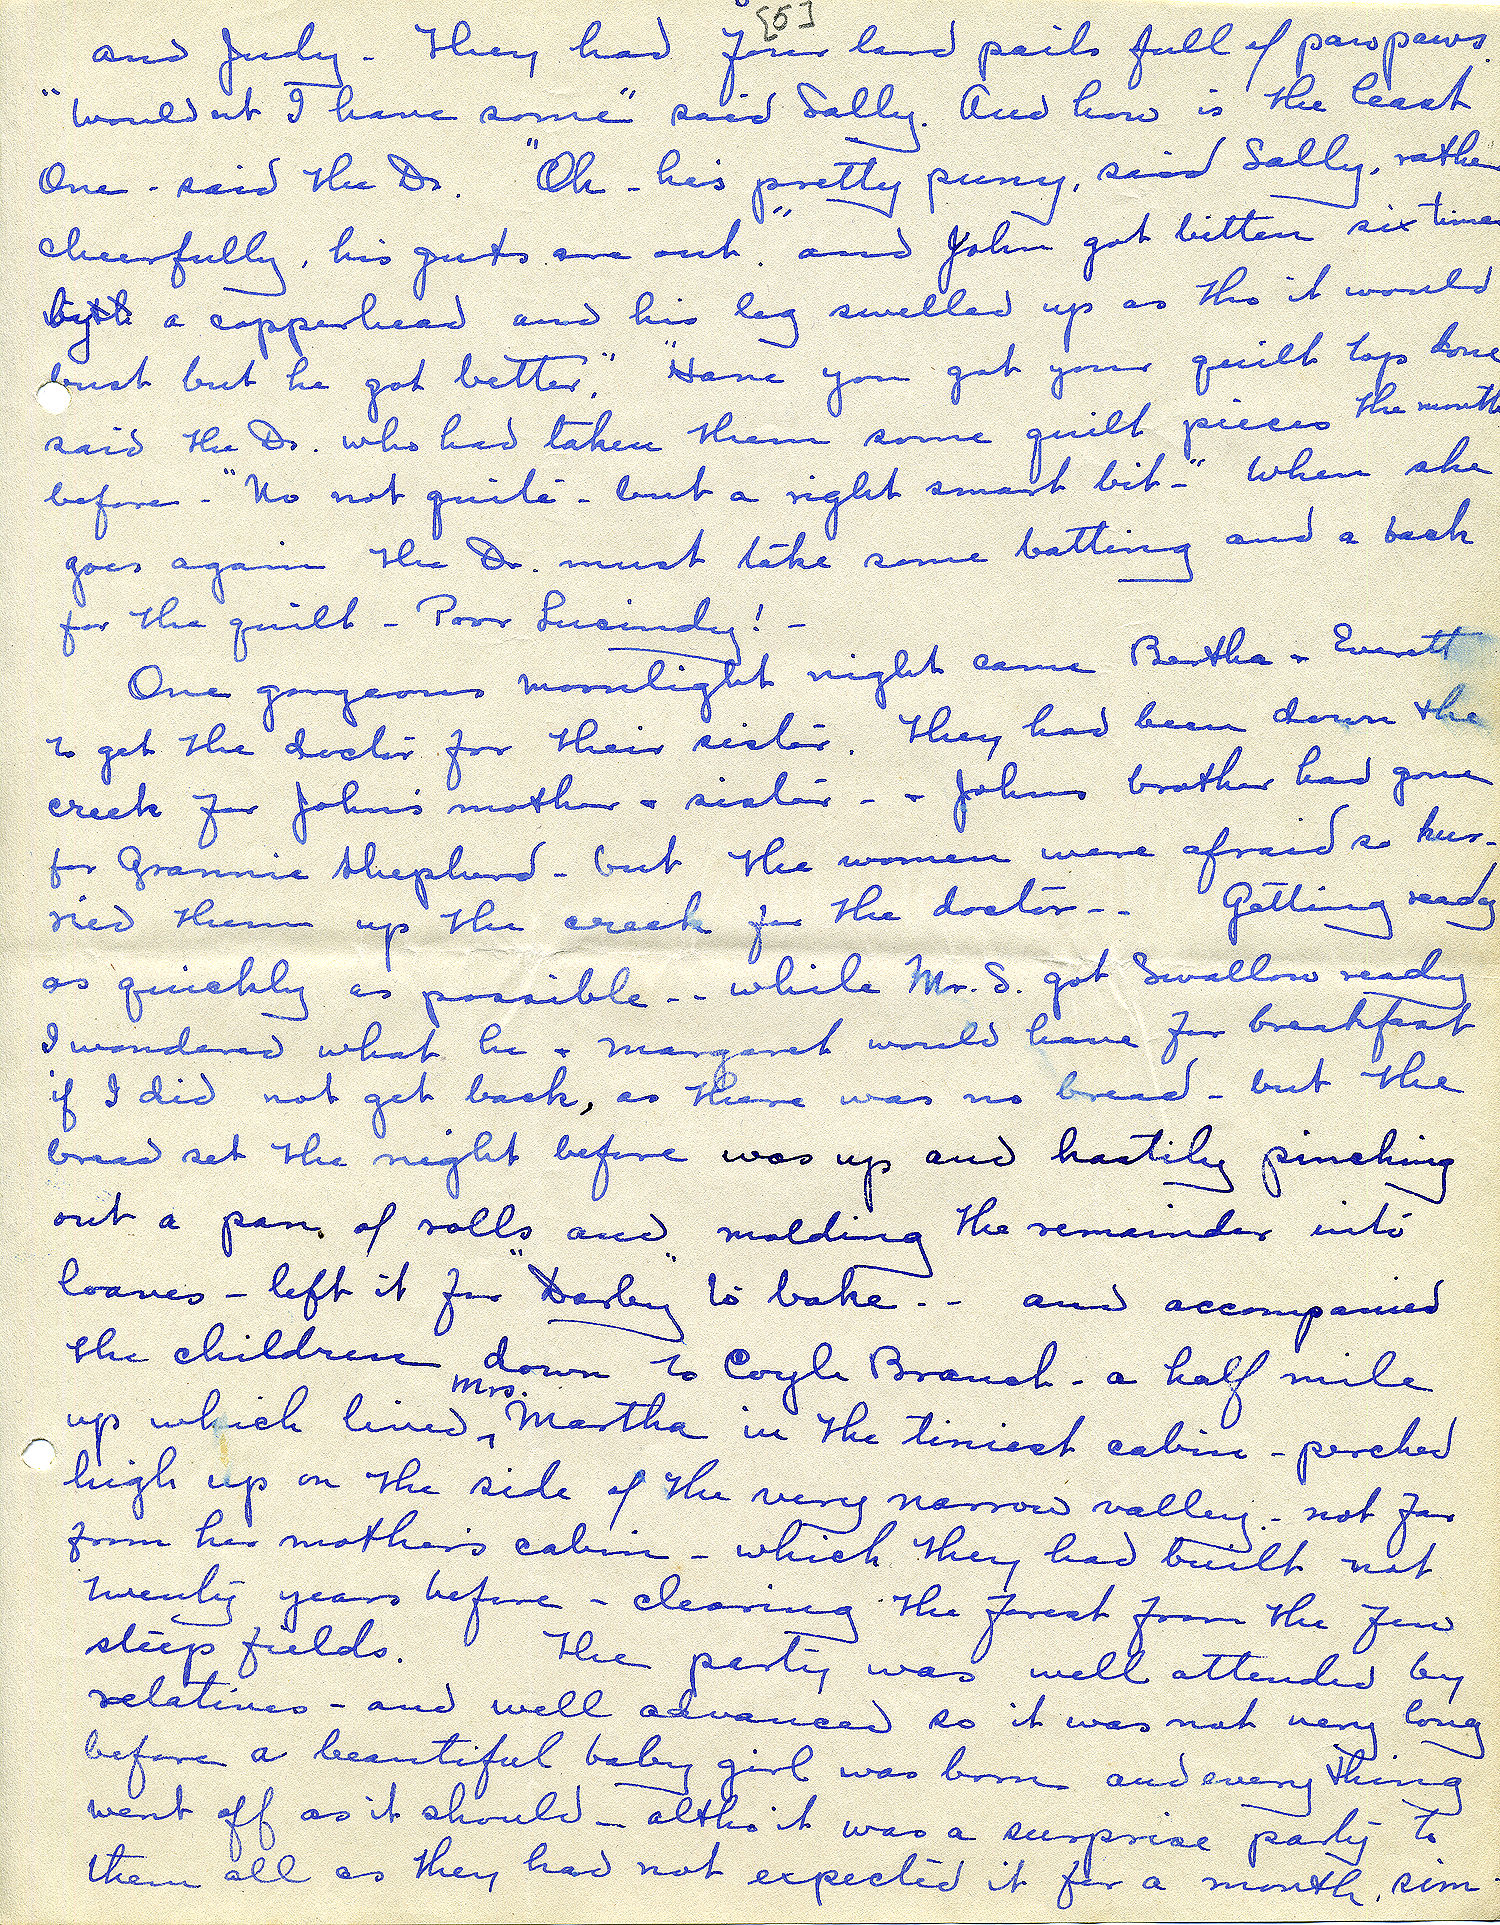 [5]
and Judy - They had four lard pails full of pawpaws.
"Wouldnt I have some" said Sally. And how is the least
One - said the Dr. "Oh - his pretty puny, said Sally, rather
cheerfully, his guts are out." "and John got bitten six times
by a copperhead and his leg swelled up as tho it would
bust but he got better." "Have you got your quilt top done
said the Dr. who had taken them some quilt pieces the month
before - "No not quite - but a right smart bit-" When she
goes again the Dr. must take some batting and a back
for the quilt - Poor Lucindy! -
One gorgeous moonlight night came Bertha + Everett
to get the doctor for their sister. They had been down the
creek for John's mother + sister - + Johns brother had gone
for Grannie Shepherd - but the women were afraid so hur-
ried them up the creek for the doctor-- Getting ready
as quickly as possible -- while Mr. S. got Swallow ready
I wondered what he + Margaret would have for breakfast
if I did not get back, as there was no bread - but the
bread set the night before was up and hastily pinching
out a pan of rolls and molding the remainder into
loaves - left it for "Darby" to bake -- and accompanied
the children down to Coyle Branch - a half mile
up which lived Mrs. Martha in the tiniest cabin - perched
high up on the side of the very narrow valley - not far
from her mother's cabin - which they had built not
twenty years before - clearing the forest from the few
steep fields. The party was well attended by
relatives - and well advanced so it was not very long
before a beautiful baby girl was born and every thing
went off as it should - altho it was a surprise party to
them all as they had not expected it for a month, sim-